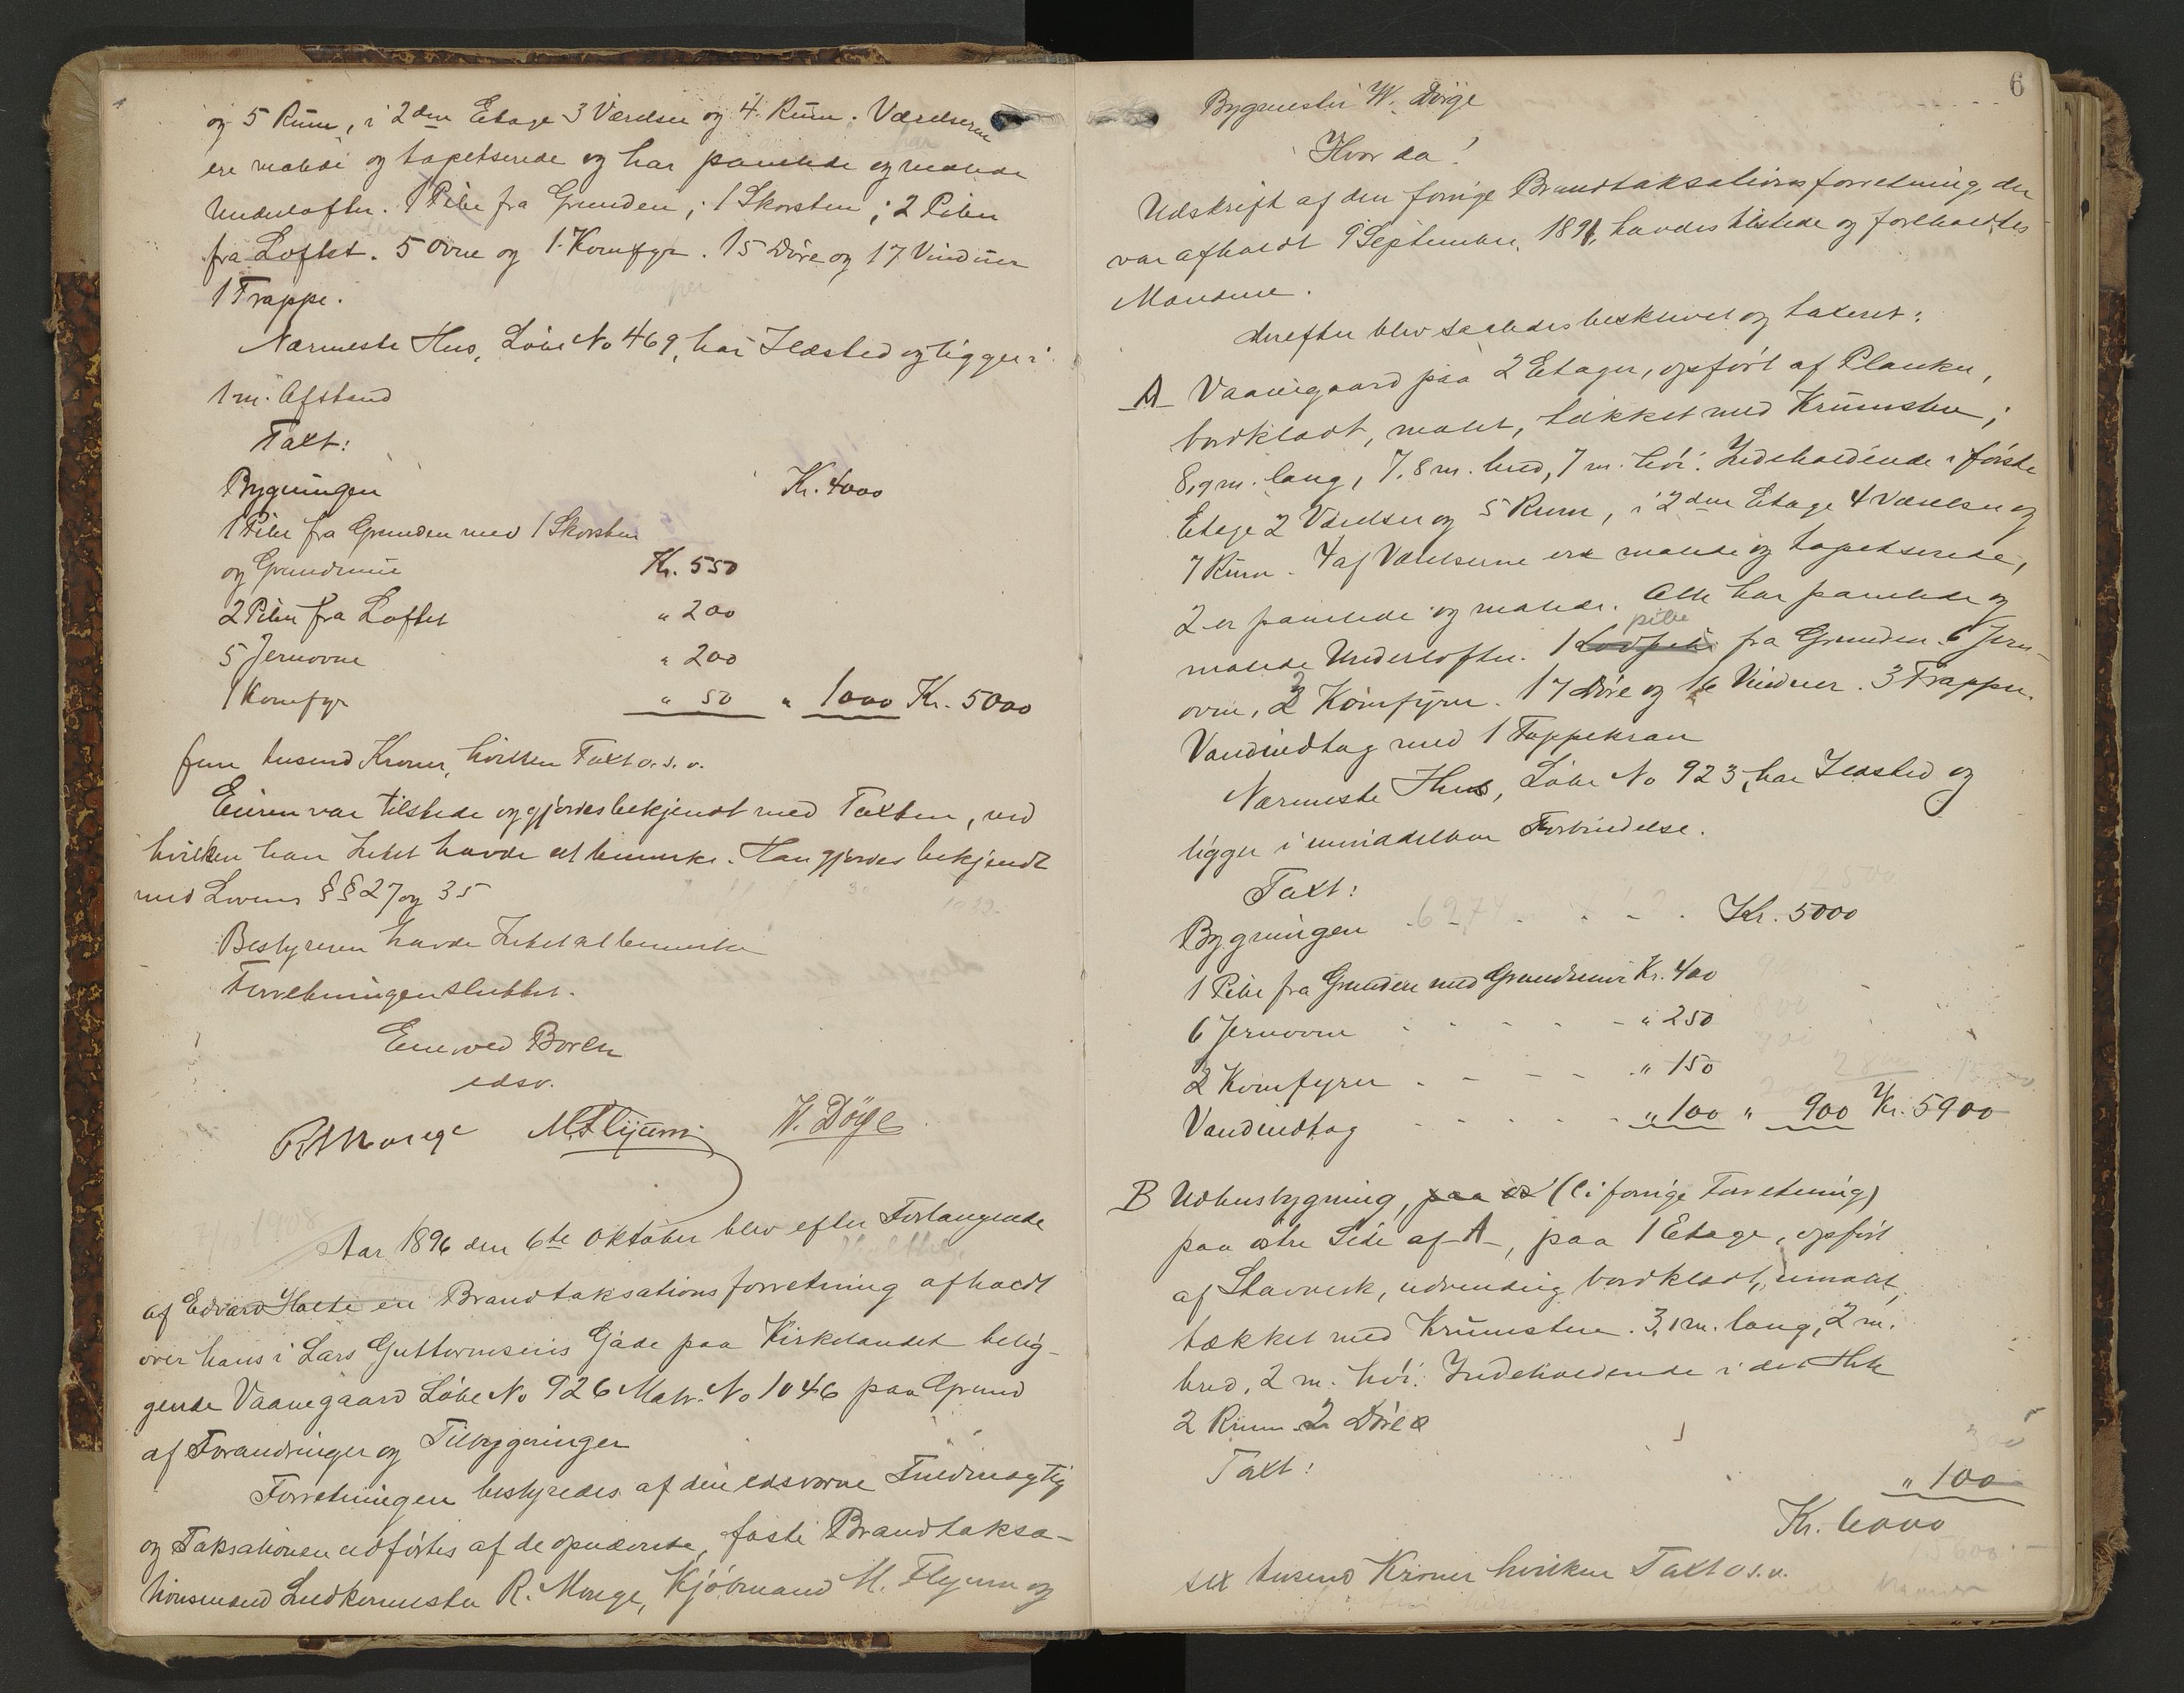 og 5 Rum, i 2den Etage 3 Værelser og 4 Rum. Værelserne
ere malede og tapetserede og har panelede og malede
Underlofter. 1 Pibe fra Grunden; 1 Skorsten; 2 Piber
fra Loftet. 5 Ovne og 1 Komfyr. 15 Døre og 17 Vinduer
1 Trappe.
Nærmeste Hus, Løbe No 469, har Ildsted og ligger i
1 m. Afstand
Taxt:
Bygningen Kr. 4000
1 Pibe fra Grunden med 1 Skorsten
og Grundmur Kr. 550
2 Piber fra Loftet " 200
5 Jernovne " 200
1 Komfyr " 50 " 1000 Kr. 5000
fem tusend Kroner, hvilken Taxt o. s. v.
Eieren var tilstede og gjordes bekjendt med Taxten, ved
hvilken han Intet havde at bemerke. Han gjordes bekjendt
med Lovens §§ 27 og 35
Bestyreren havde Intet at bemerke
Forretningen sluttet.
Enevold Boren
edsv.
R Morege M. Flyum W. Döge
Aar 1896 den 6te Oktober blev efter Forlangende
af Edvard Holte en Brandtaksationsforretning afholdt
over hans i Lars Guttormsens Gade paa Kirkelandet belig-
gende Vaanegaard Løbe No 926 Matr. No 1046 paa Grund
af Forandringer og Tilbygninger
Forretningen bestyredes af den edsvorne Fuldmægtig
og Taksationen udførtes af de opnævnte, faste Brandtaksa-
tionsmænd Snedkermester R. Morege, Kjøbmand M. Flyum og
6
Bygmester W. Döge
Hvor da!
Udskrift af den forrige Brandtaksationsforretning, der
var afholdt 9 September 1891, havdes tilstede og foreholdtes
Mændene.
Derefter blev saaledes beskrevet og taxeret:
A Vaanegaard paa 2 Etager, opført af Planker,
bordklædt, malet, tækket med Krumsten;
8,9 m. lang, 7,8 m. bred, 7 m. høi. Indeholdende i første
Etage 2 Værelser og 5 Rum, i 2den Etage 4 Værelser og
7 Rum. 4 af Værelserne ere malede og tapetserede,
2 er panelede og malede. Alle har panelede og
malede Underlofter. 1 pibe fra Grunden. 6 Jern-
ovne, 2 Komfyrer. 17 Døre og 16 Vinduer. 3 Trapper.
Vandindtag med 1 Tappekran
Nærmeste Hus, Løbe No 923, har Ildsted og
ligger i umiddelbar Forbindelse.
Taxt:
Bygningen Kr. 5000
1 Pibe fra Grunden med Grundmur Kr. 400
6 Jernovne " 250
2 Komfyrer " 150
Vandindtag " 100 " 900 Kr. 5900
B Udhusbygning, paa (C i forrige Forretning)
paa østre Side af A, paa 1 Etage, opført
af Stavverk, udvendig bordklædt, umalet,
tækket med Krumsten. 3,1 m. lang, 2 m.
bred, 2 m. høi. Indeholdende i det Hele
2 Rum 2 Døre
Taxt:
" 100
Kr. 6000
sex tusend Kroner hvilken Taxt o s. v.